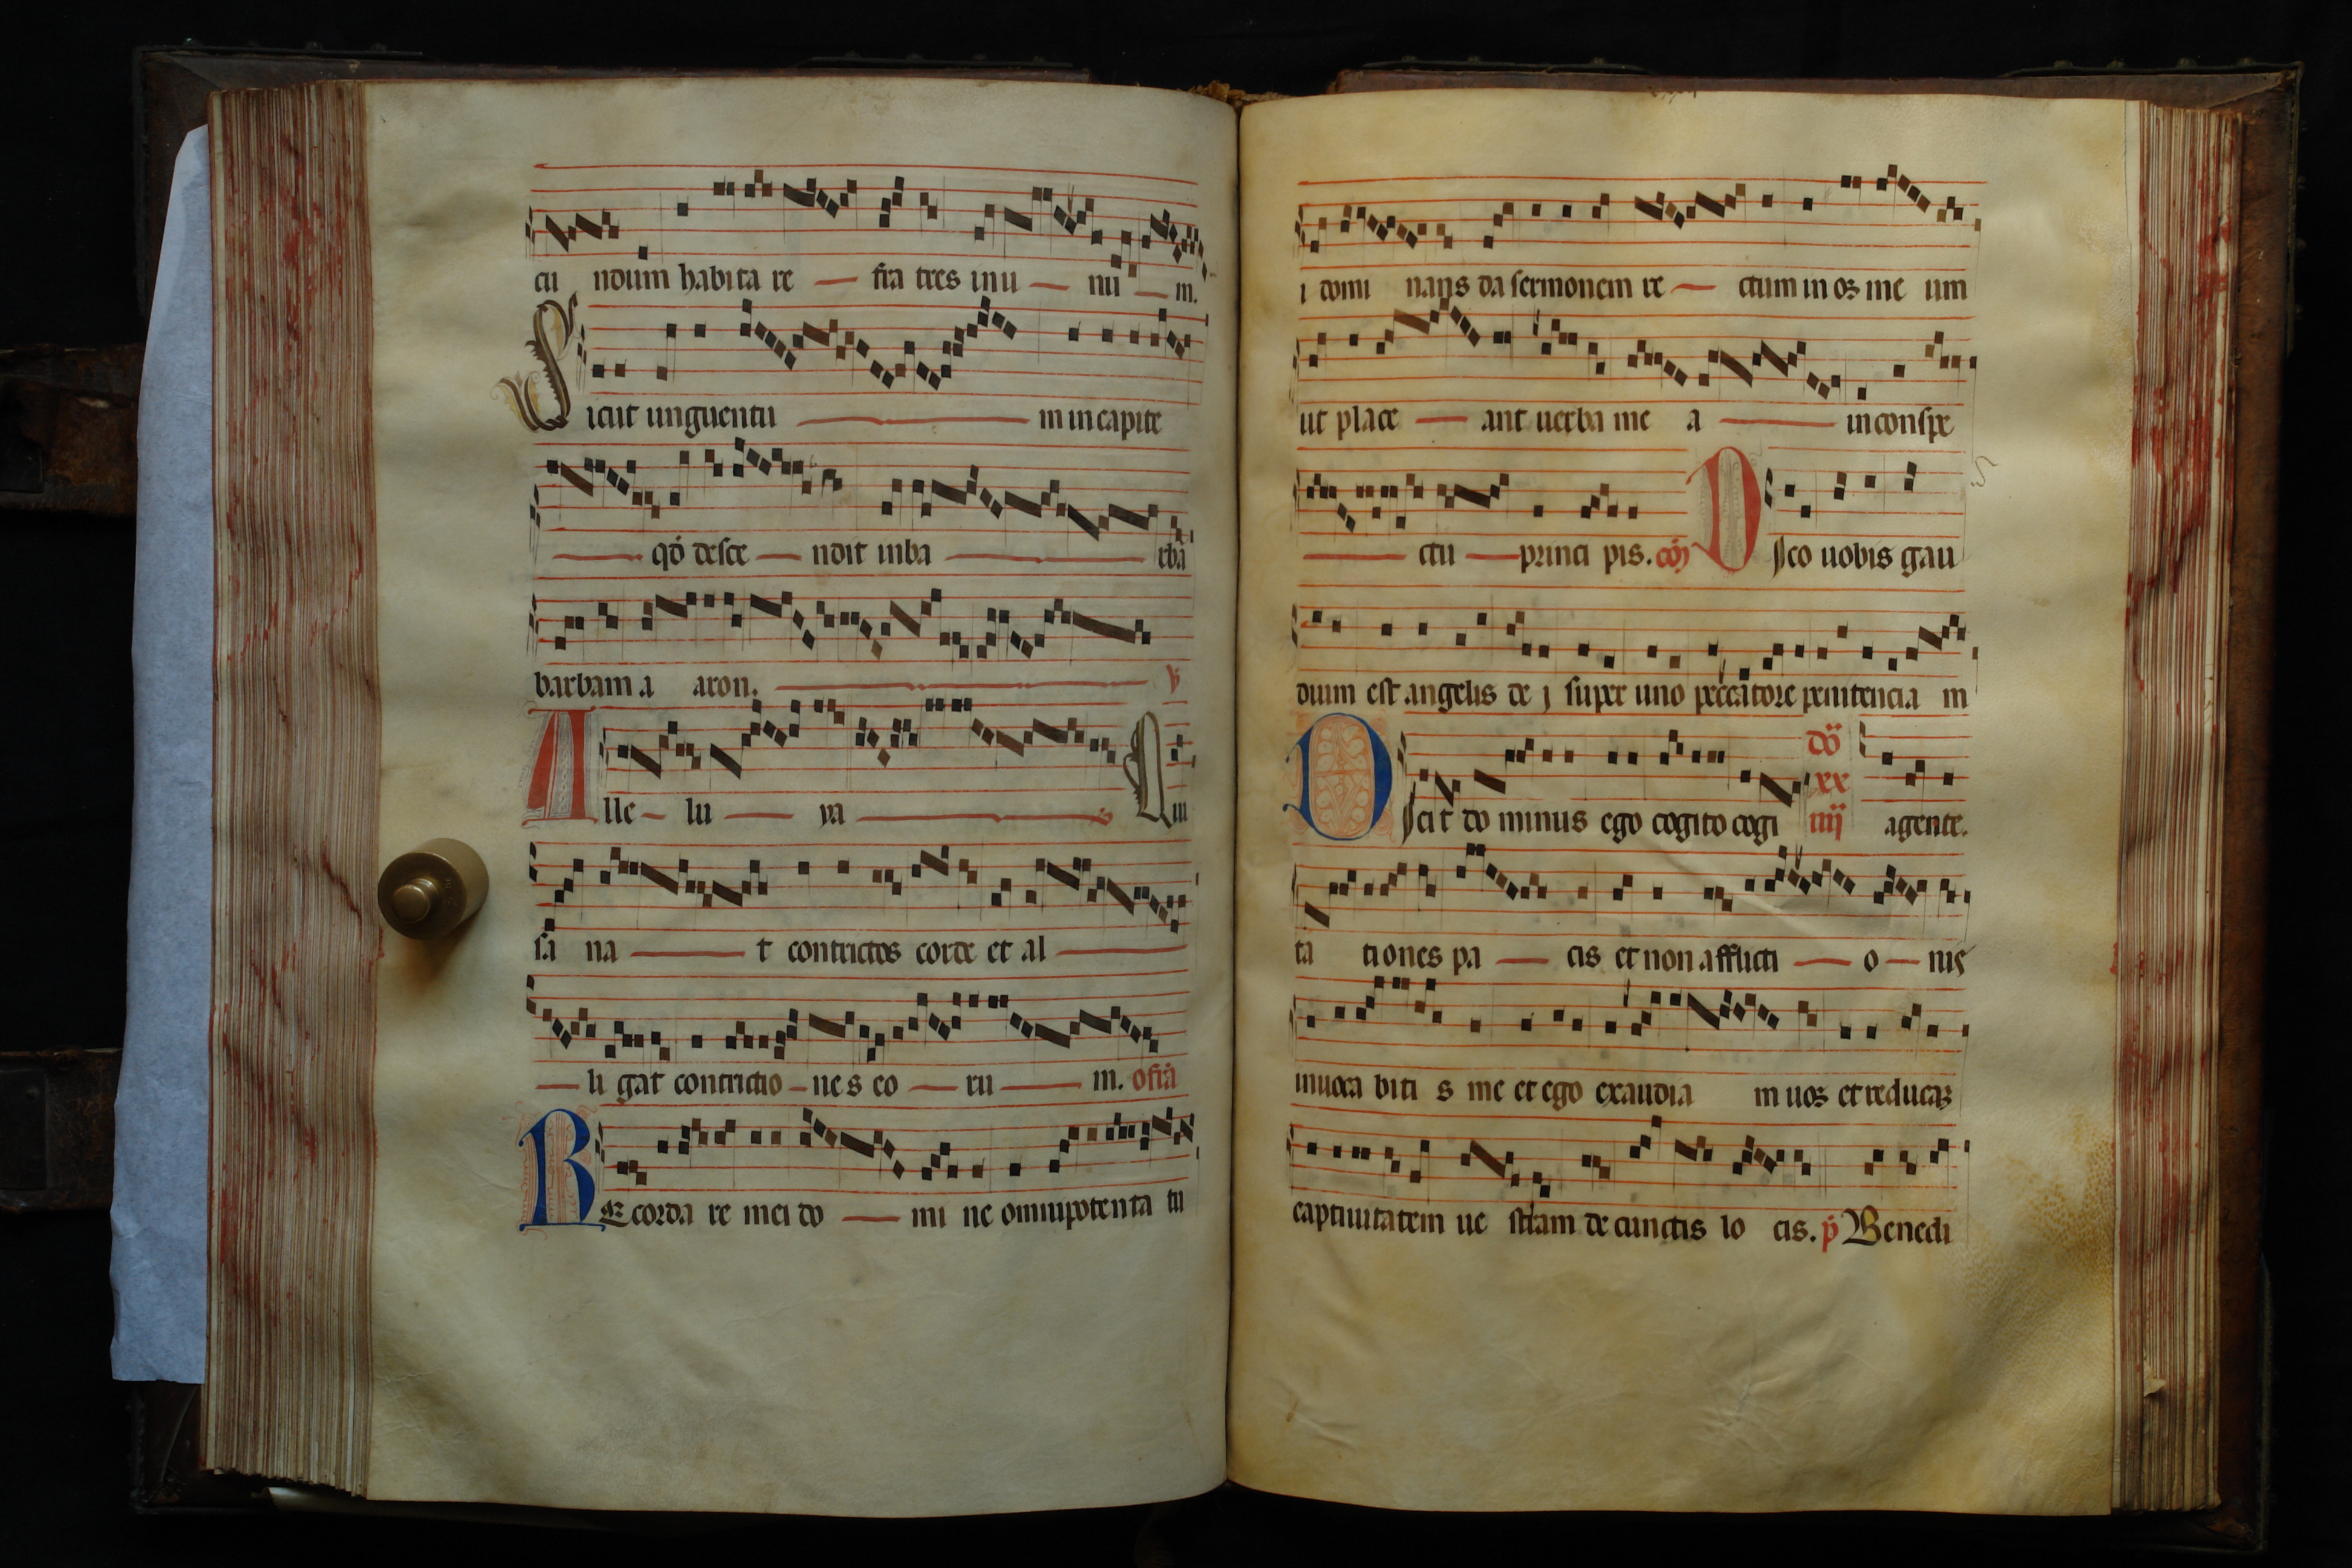 cu ndum habita re — fra tres inu — nu — m.
Sicut unguentu — m in capite
— qđ desce — ndit inba — rba
barbam a aron. — ℣
Alle — lu — ya — Qui
sa na — t contrictos corde et al —
— li gat contrictio — ne s eo — ru — m. ofrā
REcorda re mei do — mi ne omnipotenta tu
i domi nans da sermonem re — ctum in os me um
ut place — ant uerba me a — in conspe
— ctu — princi pis. cōj Dico uobis gau
dium est angelis de j super uno peccatore penitencia m
Dicit do minus ego cogito cogi dō xx iiij agente.
ta tiones pa — cis et non afflicti — o — nis
inuoca biti s me et ego exaudia m uos et reducaz
captiuitatem ue stram de cunctis lo cis. p̄ Benedi